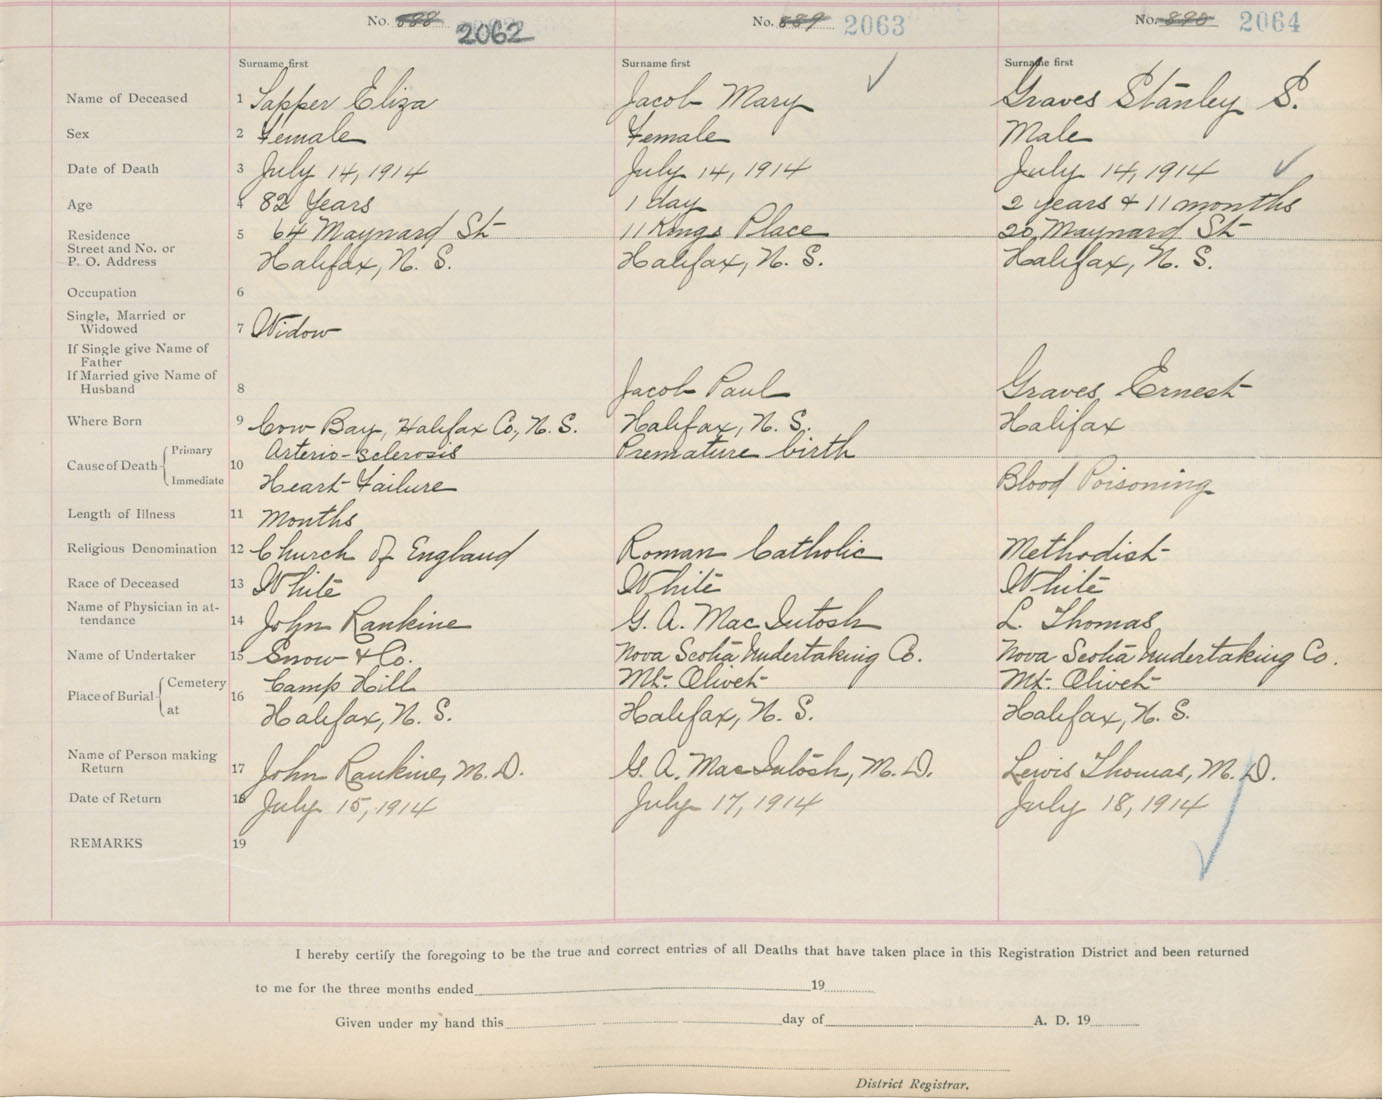 No. 888 2062 No. 889 2063 No. 890 2064
Surname first Surname first Surname first
Name of Deceased 1 Sapper Eliza Jacob Mary Graves Stanley S.
Sex 2 Female Female Male
Date of Death 3 July 14, 1914 July 14, 1914 July 14, 1914
Age 4 82 Years 1 day 2 years & 11 months
Residence 5 64 Maynard St 11 Kings Place 20 Maynard St
Street and No. or
P. O. Address Halifax, N. S. Halifax, N. S. Halifax, N. S.
Occupation 6
Single, Married or
Widowed 7 Widow
If Single give Name of
Father
If Married give Name of
Husband 8 Jacob Paul Graves, Ernest
Where Born 9 Cow Bay, Halifax Co., N. S. Halifax, N. S. Halifax
Primary Arterio-Sclerosis Premature birth
Cause of Death 10
Immediate Heart Failure Blood Poisoning
Length of Illness 11 months
Religious Denomination 12 Church of England Roman Catholic Methodist
Race of Deceased 13 White White White
Name of Physician in at-
tendance 14 John Rankine G. A. MacIntosh L. Thomas
Name of Undertaker 15 Snow & Co. Nova Scotia Undertaking Co. Nova Scotia Undertaking Co.
Cemetery Camp Hill Mt. Olivet Mt. Olivet
Place of Burial 16
at Halifax, N. S. Halifax, N. S. Halifax, N. S.
Name of Person making
Return 17 John Rankine, M. D. G. A. MacIntosh, M. D. Lewis Thomas, M. D.
Date of Return 18 July 15, 1914 July 17, 1914 July 18, 1914
REMARKS 19
I hereby certify the foregoing to be the true and correct entries of all Deaths that have taken place in this Registration District and been returned
to me for the three months ended 19
Given under my hand this day of A. D. 19
District Registrar.